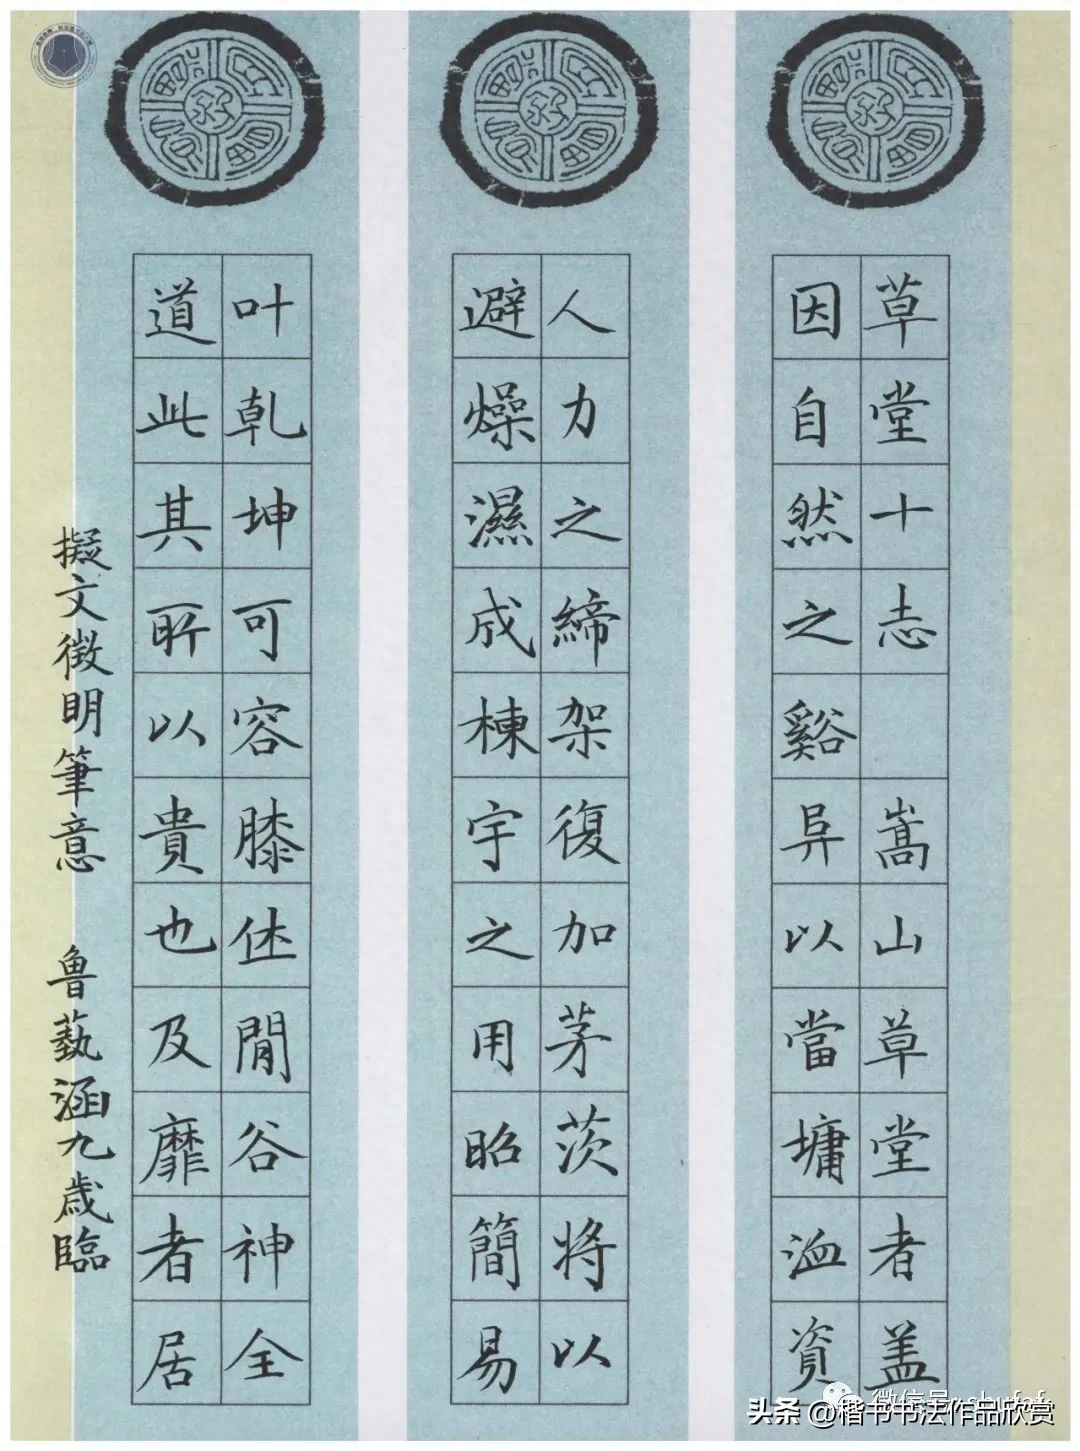 草堂十志 嵩山草堂者盖
因自然之谿异以當墉洫資
人力之締架復加茅茨将以
避燥濕成棟宇之用昭簡易
叶乹坤可容膝休閒谷神全
道此其所以貴也及靡者居
擬文徵明筆意 魯藝涵九歳臨
微信号: shufaf
头条 @楷书书法作品欣赏